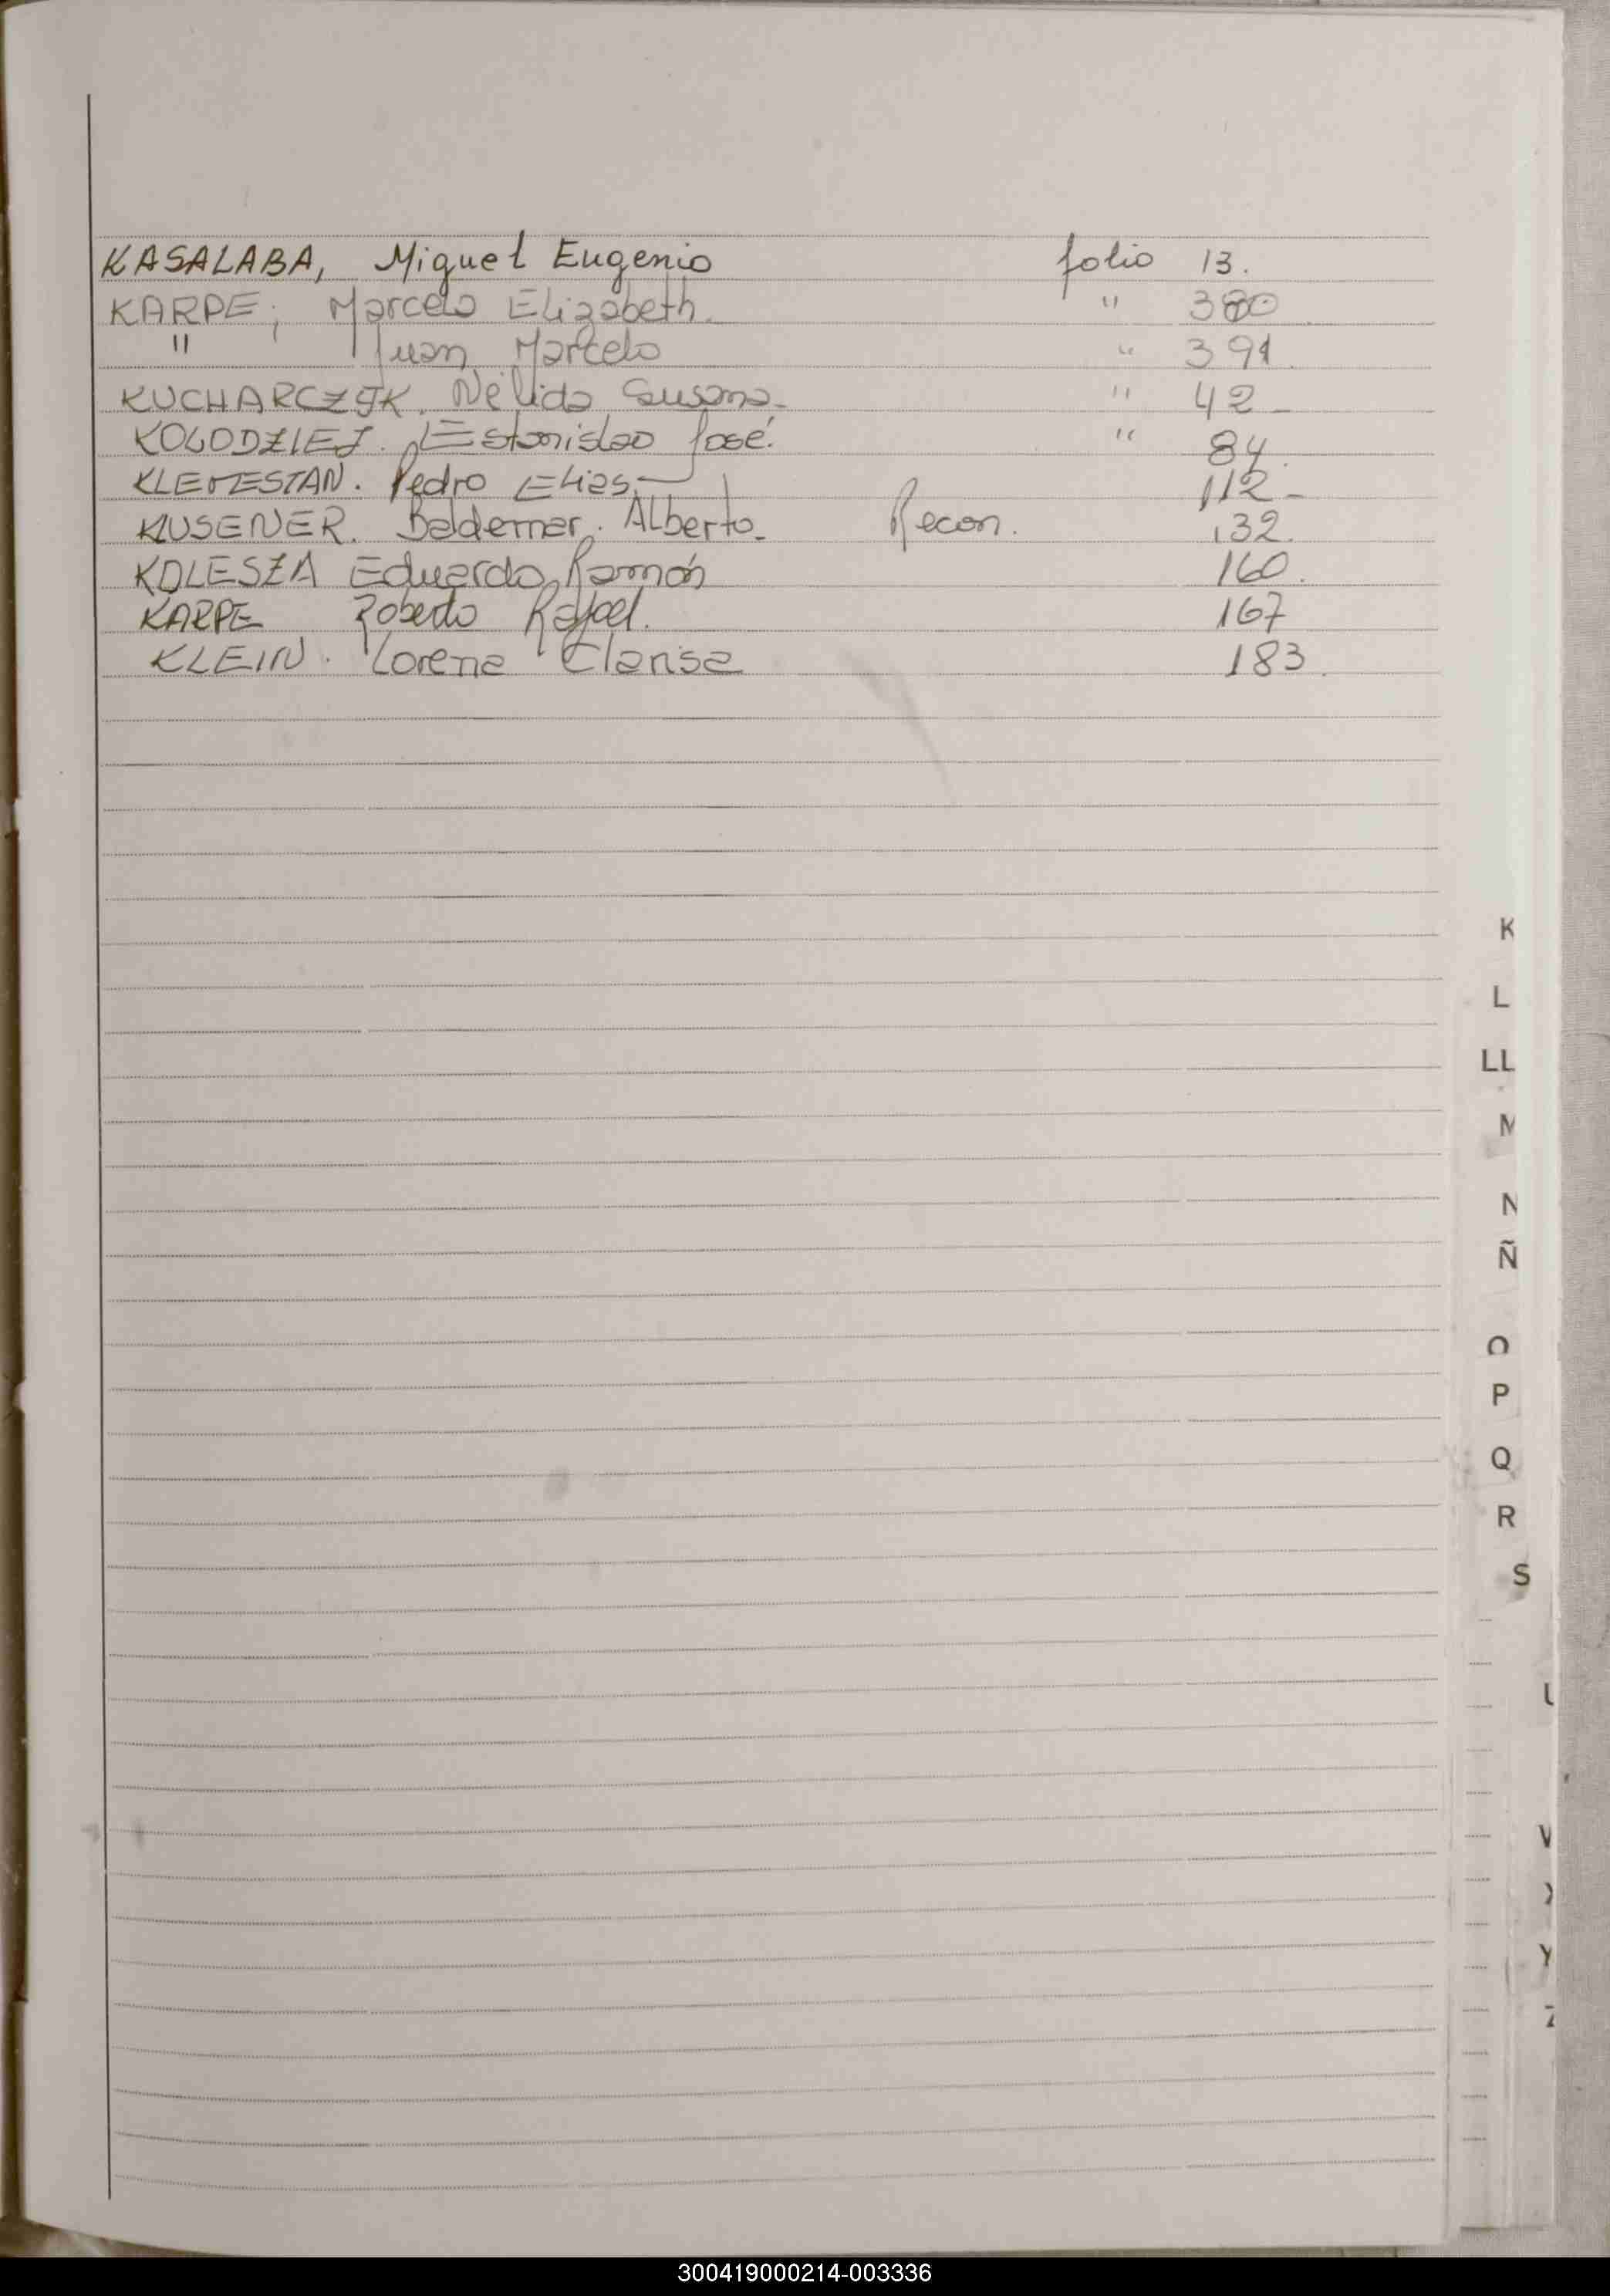 KASALABA, Miguel Eugenio folio 13.
KARPE; Marcelo Elizabeth. " 380
" Juan Marcelo " 391
KUCHARCZYK. Nélida Susana- " 42-
KOLODZIEJ. Estanislao José. " 84.
Pedro Elias. 112-
KLUSENER. Baldemar. Alberto. Recon. 132.
KOLESZA Eduardo Ramón 160.
KARPE Roberto Rafael. 167
KLEIN. Lorena Clarisa 183.
K
L
LL
M
N
Ñ
O
P
Q
R
S
U
V
X
Y
Z
300419000214-003336